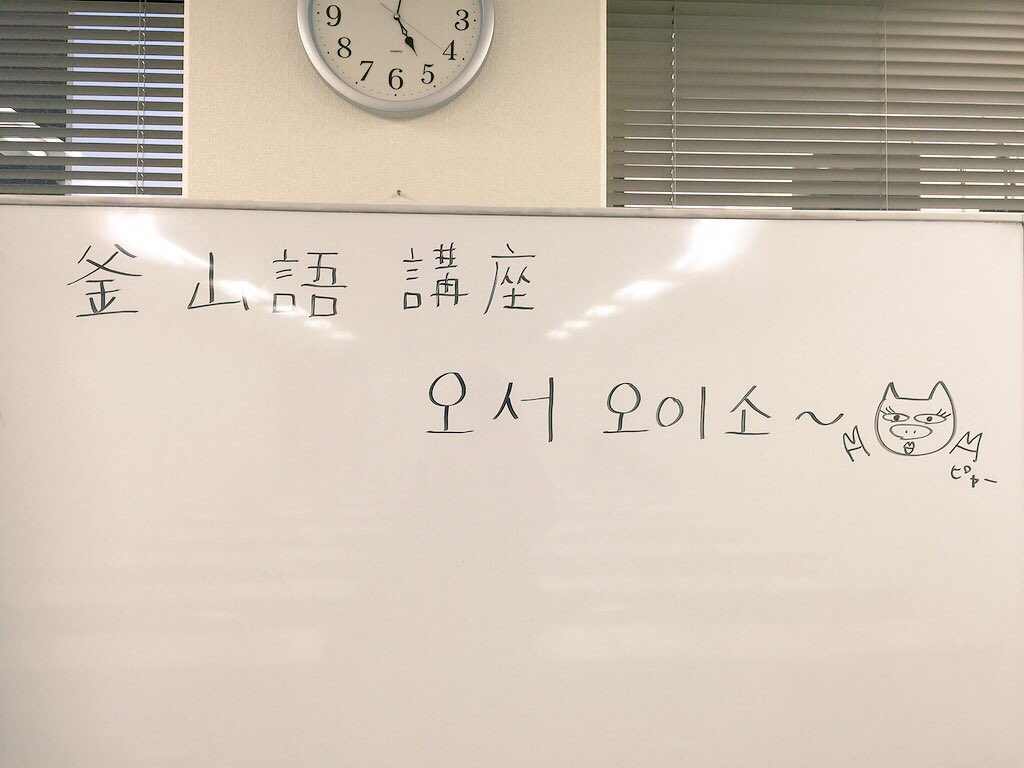 9 3
8 4
7 6 5
QUARTZ
釜山語 講座
오서 오이소~
ピャー